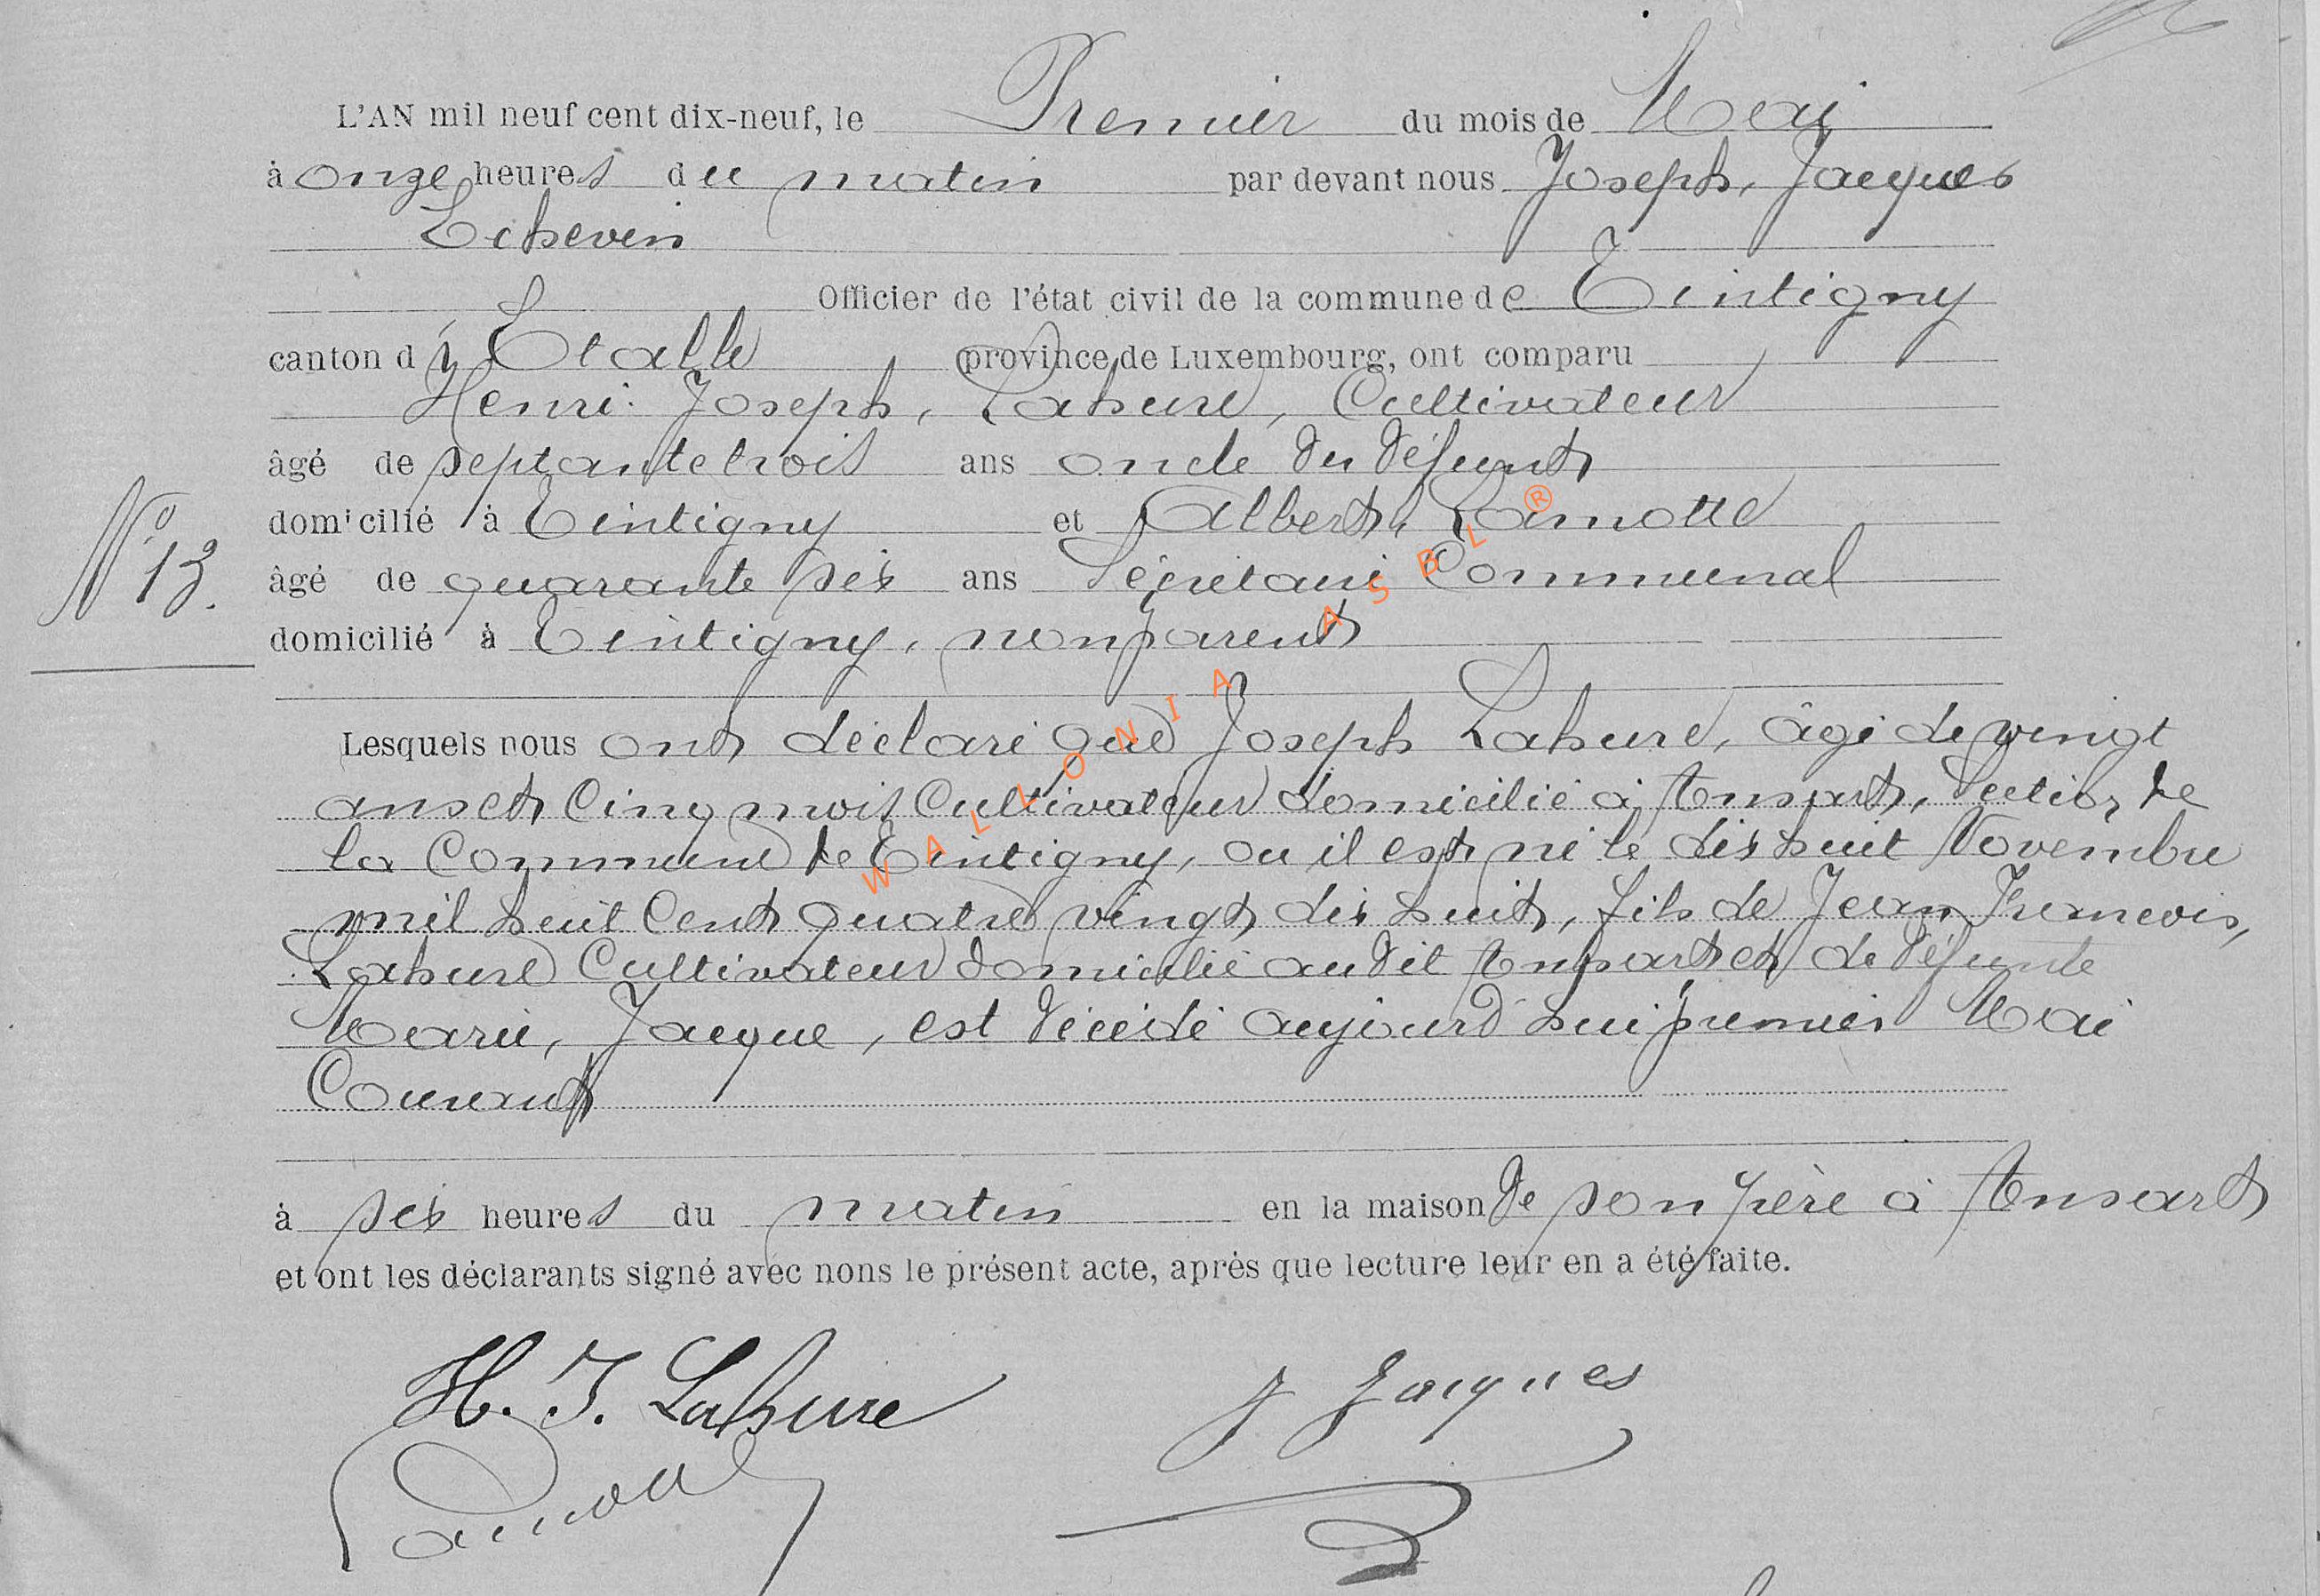 L'AN mil neuf cent dix-neuf, le Premier du mois de Mai
à onze heures du matin par devant nous Joseph, Jacques
Echevin
Officier de l'état civil de la commune de Tintigny
canton d'Etalle province de Luxembourg, ont comparu
Henri Joseph, Lahure, Cultivateur
âgé de septante trois ans oncle du défunt
domicilié à Tintigny et Albert, Lamotte
N° 13.
âgé de quarante six ans Secrétaire Communal
domicilié à Tintigny, non parent
WALLONIA ASBL ®
Lesquels nous ont déclaré que Joseph Lahure, âgé de vingt
ans et cinq mois Cultivateur domicilié à Ansart, Section de
la Commune de Tintigny, ou il est né le dix huit Novembre
mil huit Cent quatre vingt dix huit, fils de Jean Francois,
Lahure Cultivateur domicilié au dit Ansart et de défunte
Marie, Jacque, est décédé aujourd'hui premier Mai
Courant
à six heures du matin en la maison de son père à Ansart
et ont les déclarants signé avec nons le présent acte, après que lecture leur en a été faite.
H. J. Lahure J Jacques
Lamotte